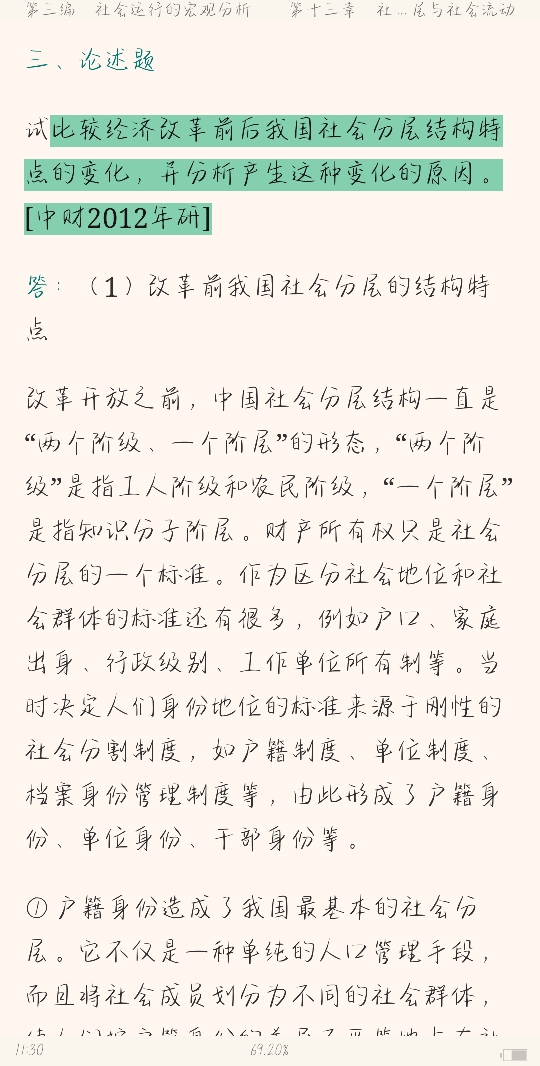 第三编 社会运行的宏观分析 第十三章 社…层与社会流动
三、论述题
试比较经济改革前后我国社会分层结构特
点的变化，并分析产生这种变化的原因。
[中财2012年研]
答：（1）改革前我国社会分层的结构特
点
改革开放之前，中国社会分层结构一直是
“两个阶级、一个阶层”的形态，“两个阶
级”是指工人阶级和农民阶级，“一个阶层”
是指知识分子阶层。财产所有权只是社会
分层的一个标准。作为区分社会地位和社
会群体的标准还有很多，例如户口、家庭
出身、行政级别、工作单位所有制等。当
时决定人们身份地位的标准来源于刚性的
社会分割制度，如户籍制度、单位制度、
档案身份管理制度等，由此形成了户籍身
份、单位身份、干部身份等。
①户籍身份造成了我国最基本的社会分
层。它不仅是一种单纯的人口管理手段，
而且将社会成员划分为不同的社会群体，
11:30 69.20%